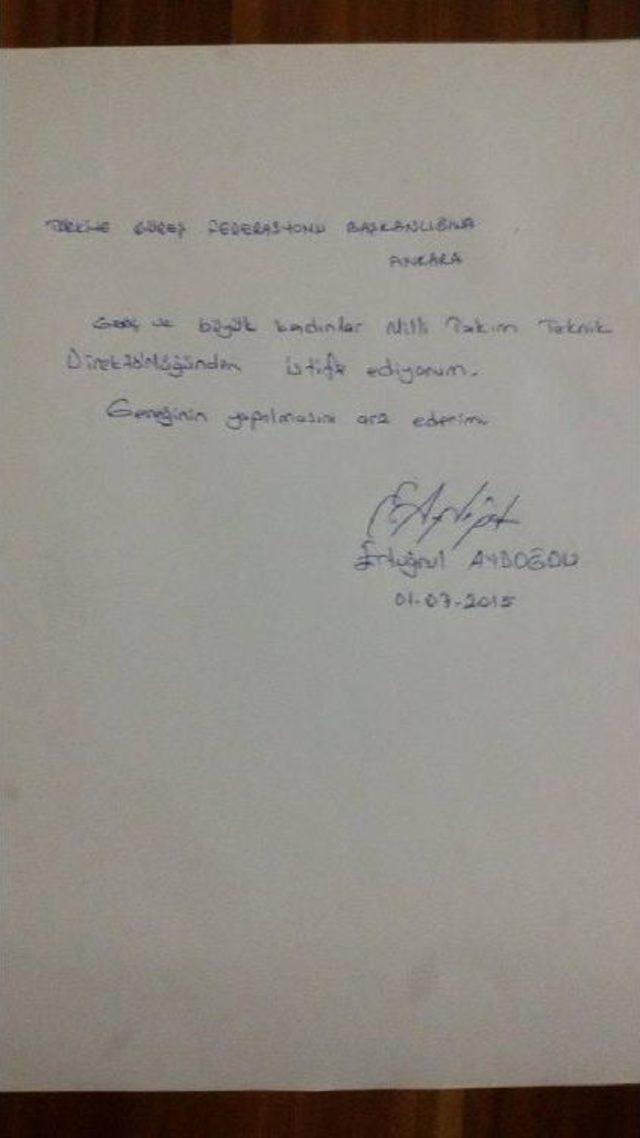 TÜRKİYE GÜREŞ FEDERASYONU BAŞKANLIĞINA
ANKARA
Genç ve büyük kadınlar Milli Takım Teknik
Direktörlüğünden istifa ediyorum.
Gereğinin yapılmasını arz ederim.
Ertuğrul AYDOĞDU
01-07-2015